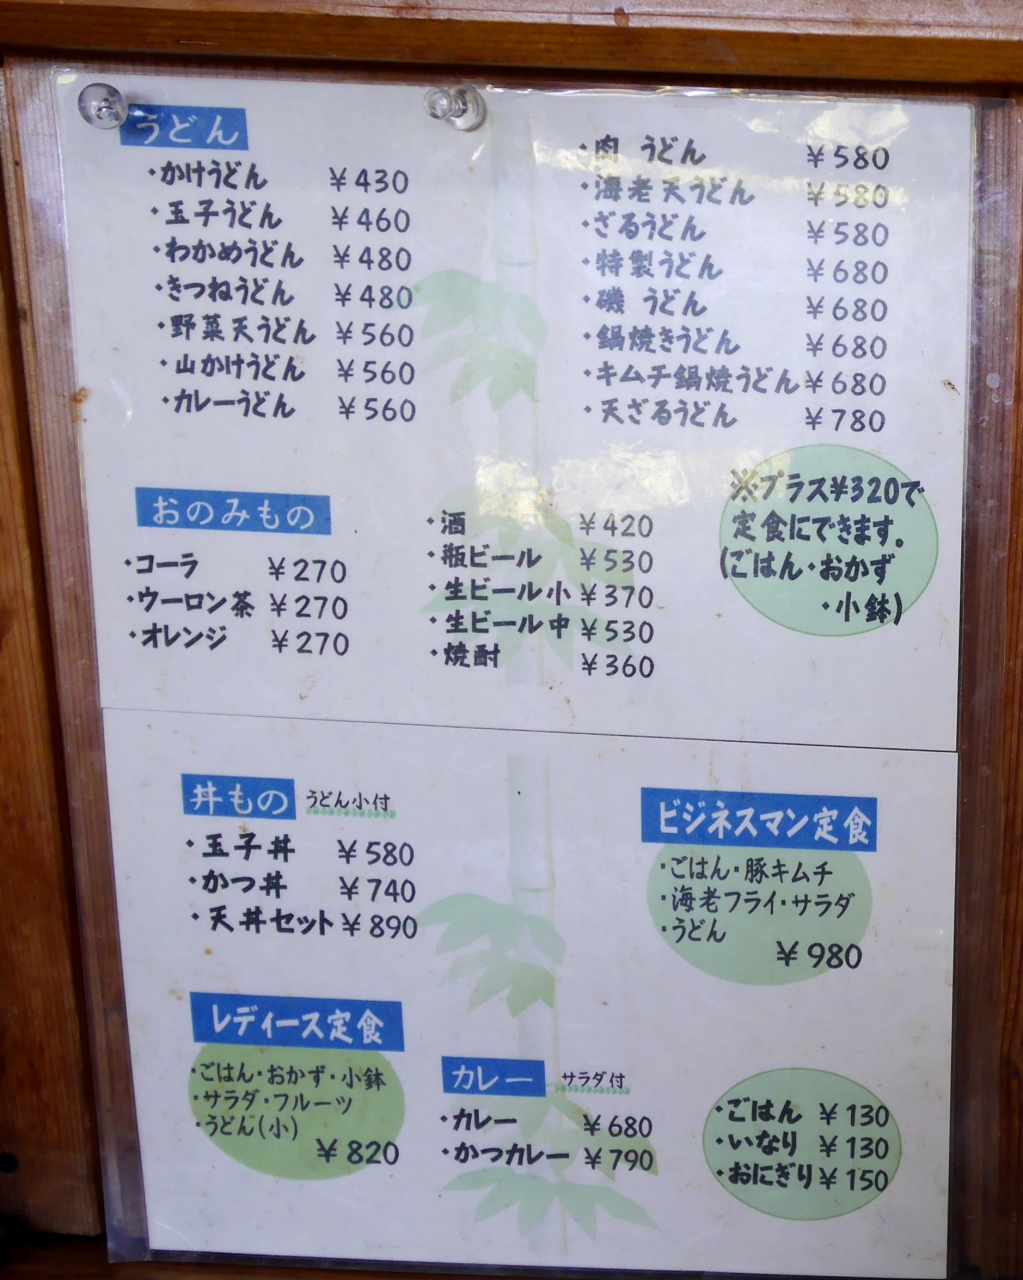 うどん
・かけうどん ￥430
・玉子うどん ￥460
・わかめうどん ￥480
・きつねうどん ￥480
・野菜天うどん ￥560
・山かけうどん ￥560
・カレーうどん ￥560
・肉 うどん ￥580
・海老天うどん ￥580
・ざるうどん ￥580
・特製うどん ￥680
・磯 うどん ￥680
・鍋焼きうどん ￥680
・キムチ鍋焼うどん ￥680
・天ざるうどん ￥780
※プラス¥320で
定食にできます。
(ごはん・おかず
・小鉢)
おのみもの
・コーラ ￥270
・ウーロン茶 ￥270
・オレンジ ￥270
・酒 ￥420
・瓶ビール ￥530
・生ビール小 ￥370
・生ビール中 ￥530
・焼酎 ￥360
丼もの うどん小付
・玉子丼 ￥580
・かつ丼 ￥740
・天丼セット ￥890
ビジネスマン定食
・ごはん・豚キムチ
・海老フライ・サラダ
・うどん
￥980
レディース定食
・ごはん・おかず・小鉢
・サラダ・フルーツ
・うどん(小)
￥820
カレー サラダ付
・カレー ￥680
・かつカレー ￥790
・ごはん ￥130
・いなり ￥130
・おにぎり ￥150